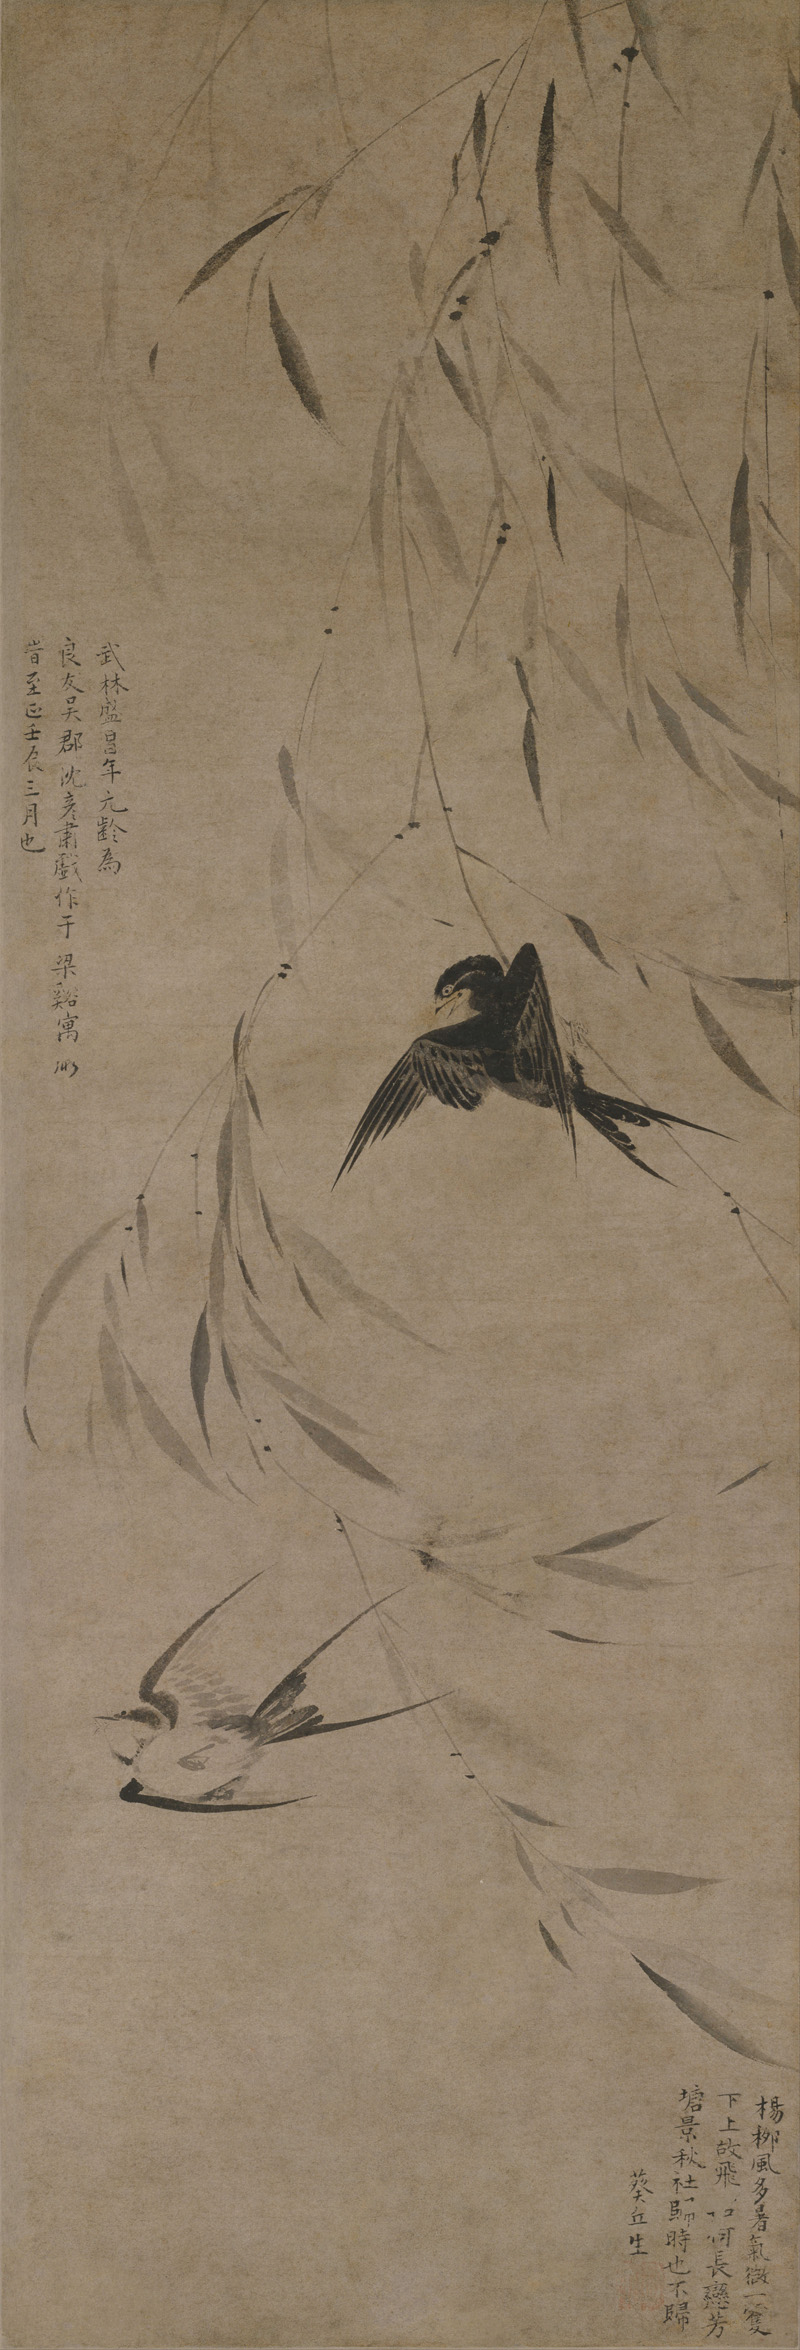 武林盛昌年元齡為
良友吳郡沈彥肅戲作于梁谿寓所
時至正壬辰三月也
楊柳風多暑氣微一雙
下上故飛 如何長戀芳
塘景秋社歸時也不歸
葵丘生